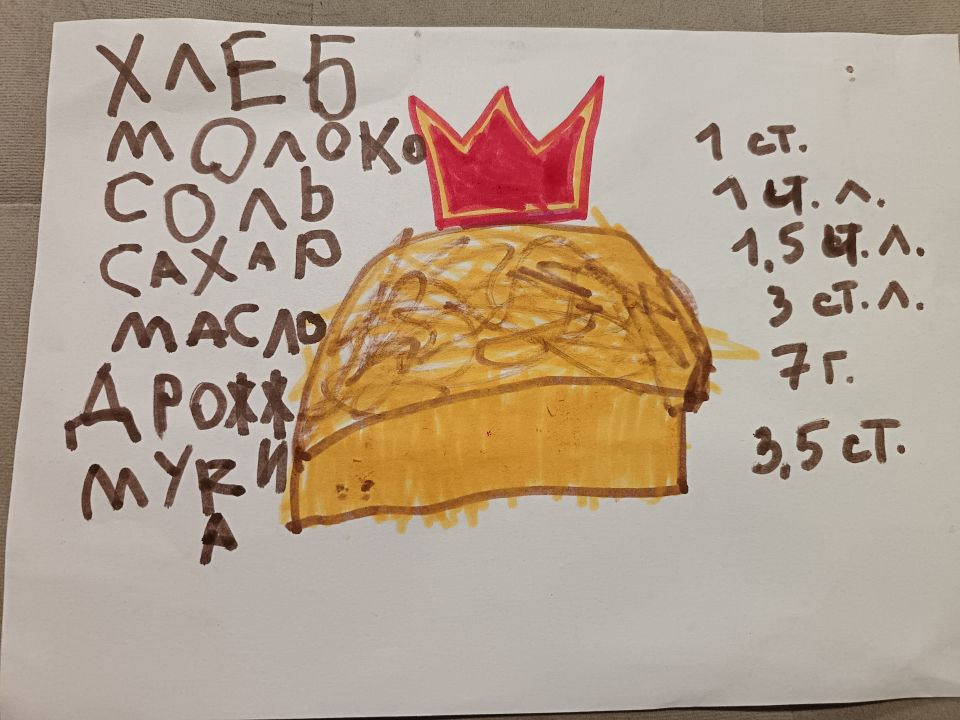 ХЛЕБ
МОЛОКО 1 ст.
СОЛЬ 1 ч. л.
САХАР 1,5 ч. л.
МАСЛО 3 ст. л.
ДРОЖЖИ 7 г.
МУКА 3,5 ст.